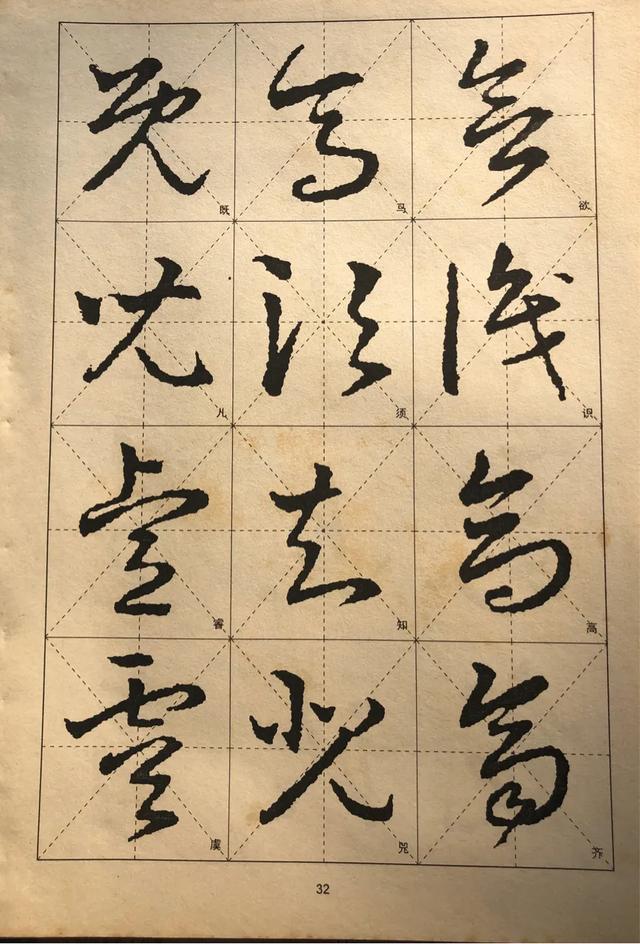 欲识高齐
马须知咒
既儿睿虞
32